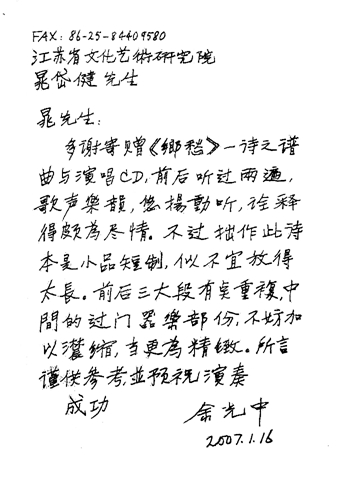 FAX: 86-25-84409580
江苏省文化艺術研究院
晁岱健先生
晁先生:
多谢寄赠《鄉愁》一诗之谱
曲与演唱CD,前后听过两遍,
歌声樂韻,悠揚動听,詮释
得頗為尽情。不过拙作此诗
本是小品短制,似不宜放得
太長。前后三大段有矣重複,中
間的过门器樂部份,不妨加
以濃缩,当更為精緻。所言
謹供参考,並预祝演奏
成功
余光中
2007.1.16